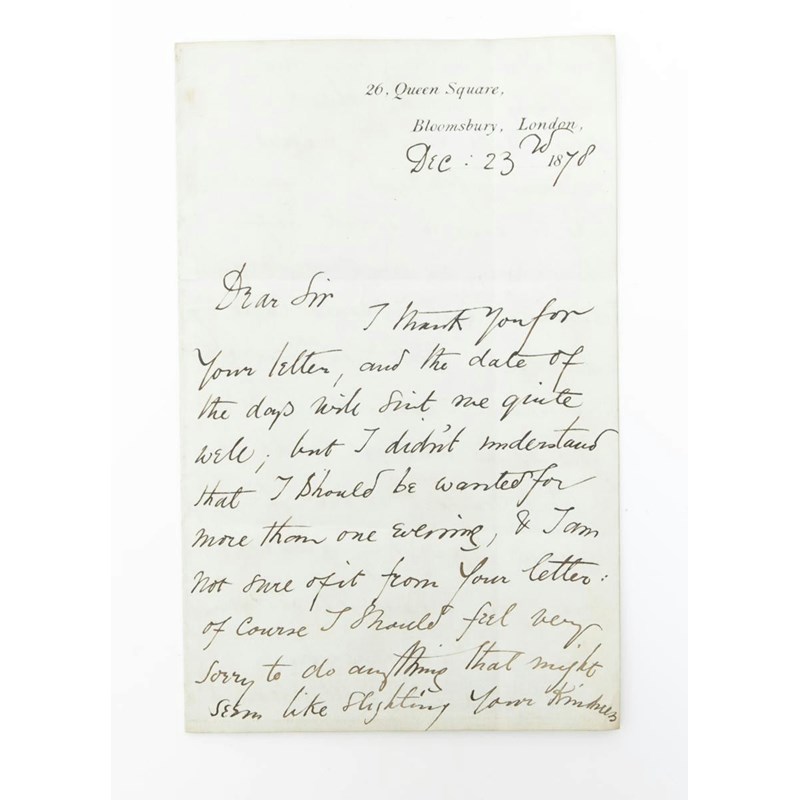 26, Queen Square,
Bloomsbury, London,
Dec: 23rd 1878
Dear Sir
I thank you for
your letter, and the date of
the days will suit me quite
well; but I didn't understand
that I should be wanted for
more than one evening, & I am
not sure of it from your letter:
of course I should feel very
sorry to do anything that might
seem like slighting your kindness